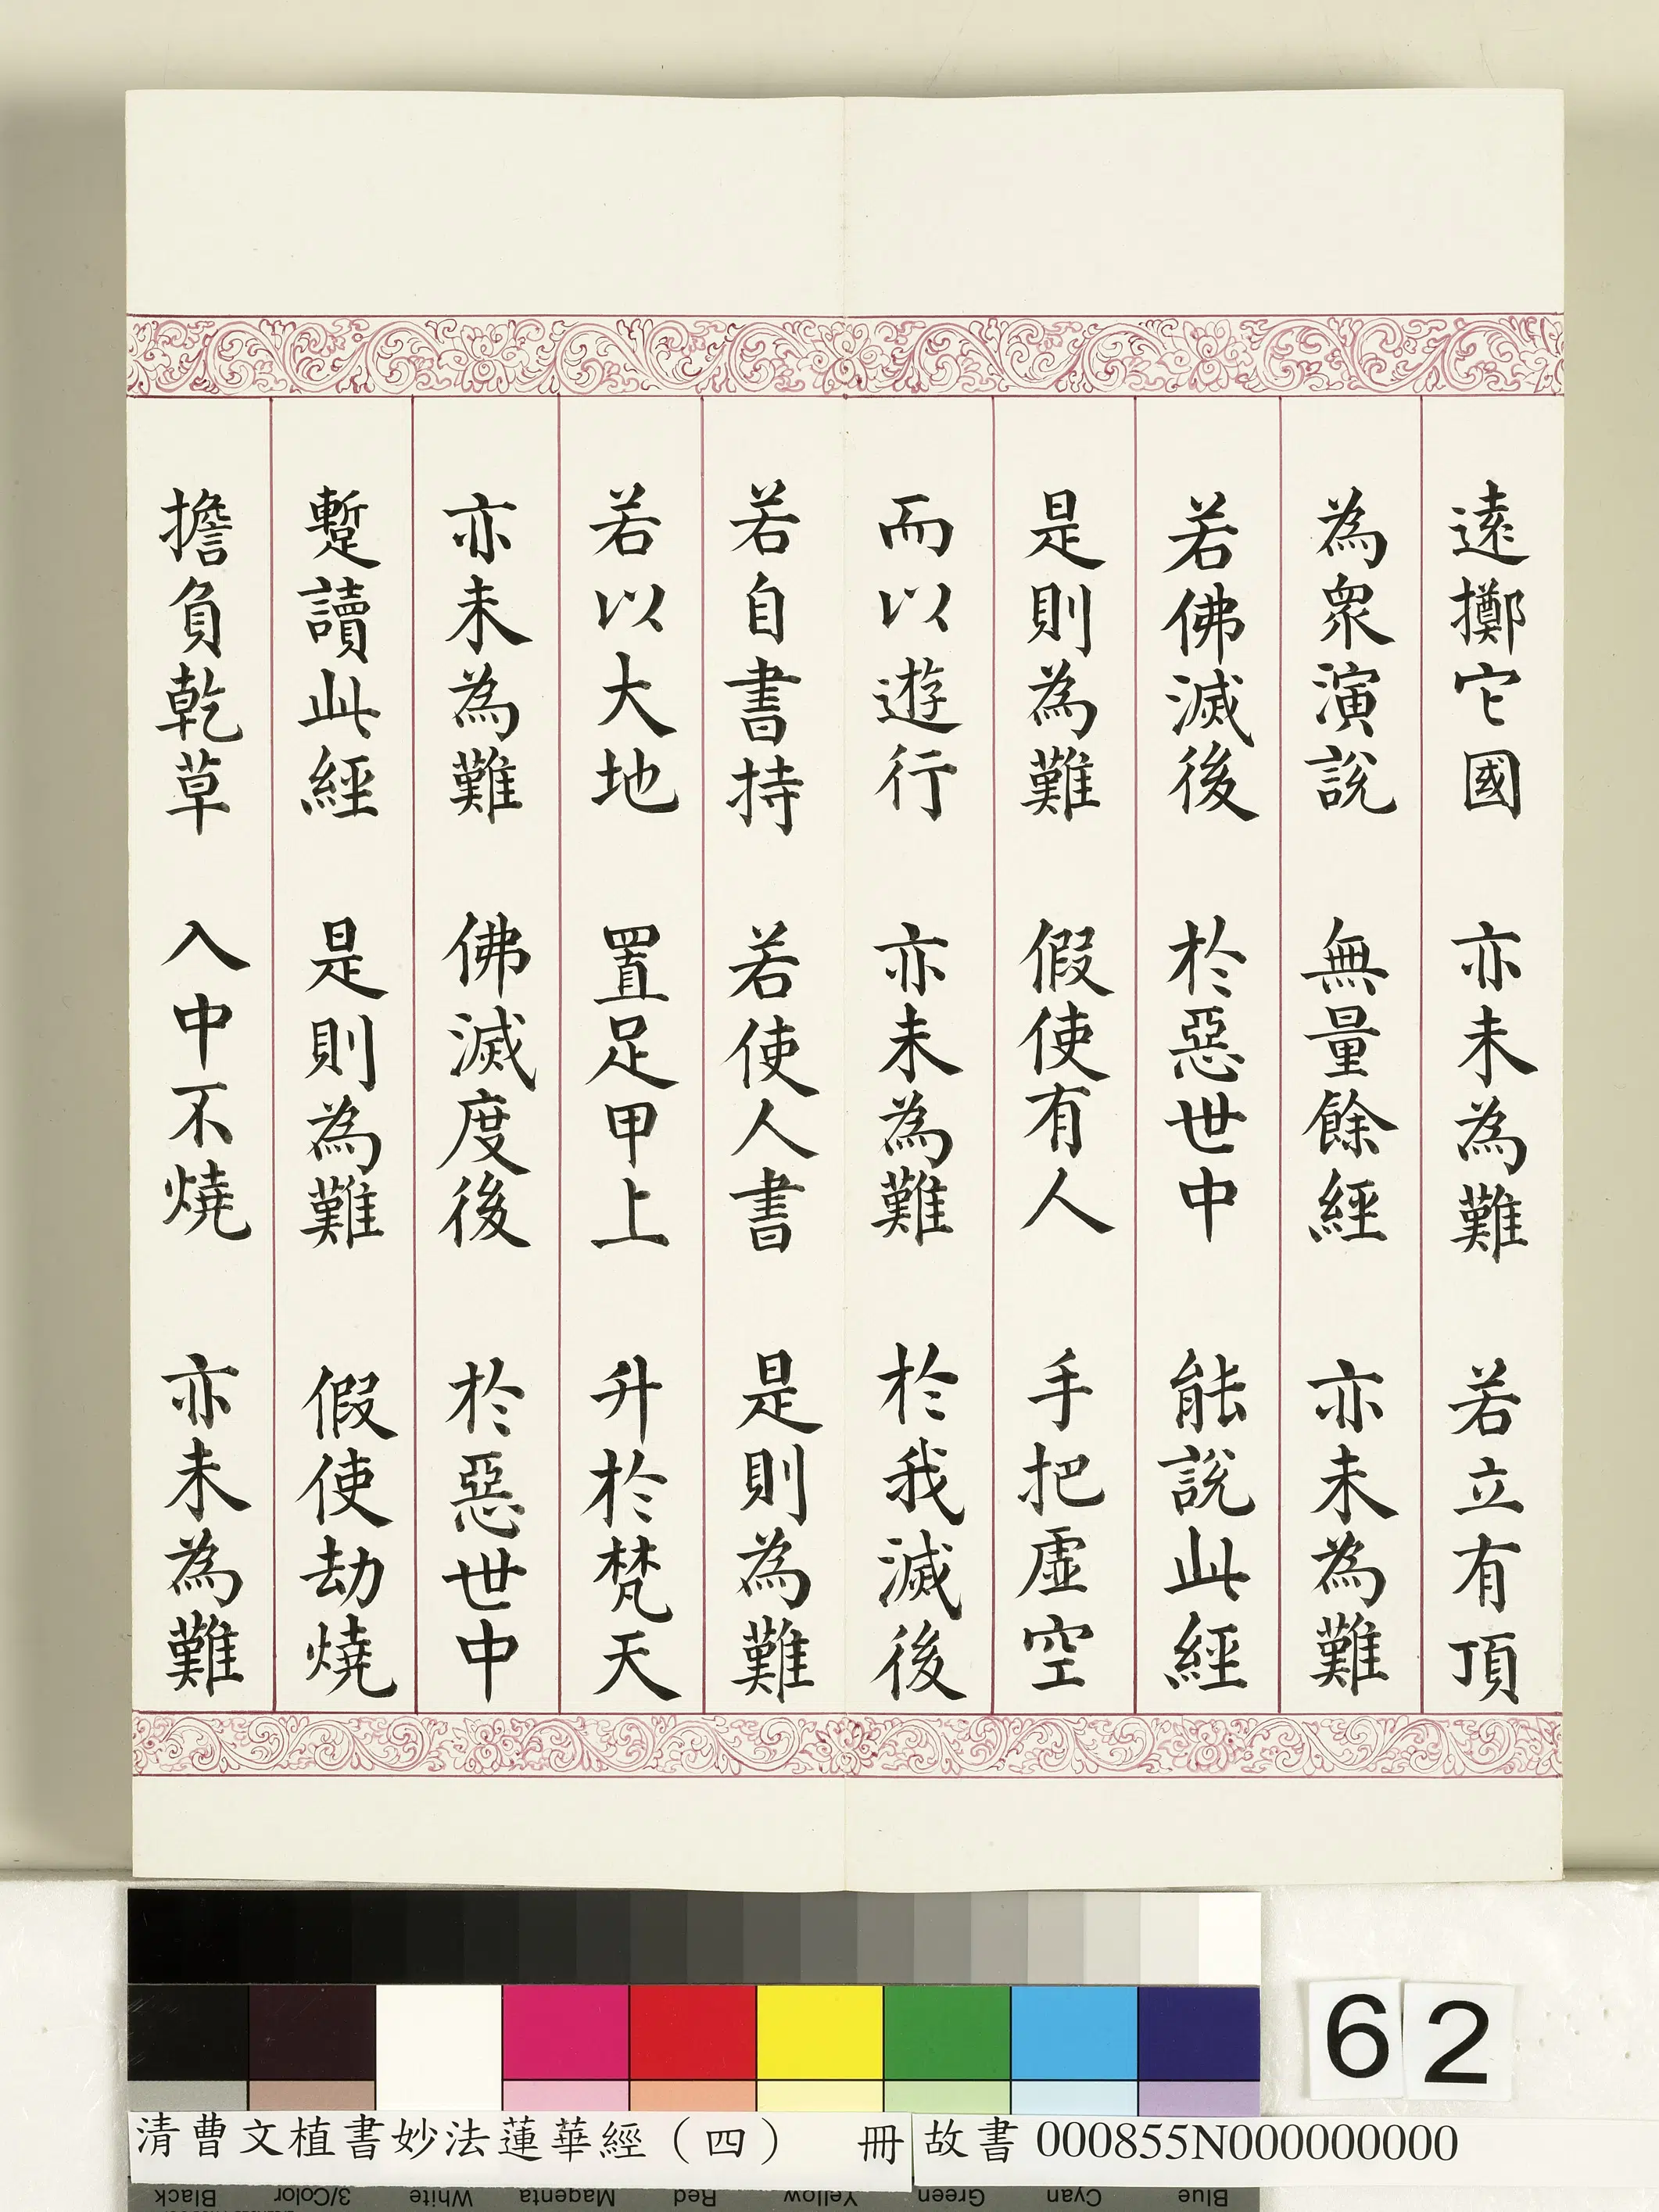 遠擲它國 亦未為難 若立有頂
為衆演說 無量餘經 亦未為難
若佛滅後 於惡世中 能說此經
是則為難 假使有人 手把虛空
而以遊行 亦未為難 於我滅後
若自書持 若使人書 是則為難
若以大地 置足甲上 升於梵天
亦未為難 佛滅度後 於惡世中
蹔讀此經 是則為難 假使劫燒
擔負乾草 入中不燒 亦未為難
62
清曹文植書妙法蓮華經（四） 冊 故書 000855N000000000
Black 3/Color White Magenta Red Yellow Green Cyan Blue